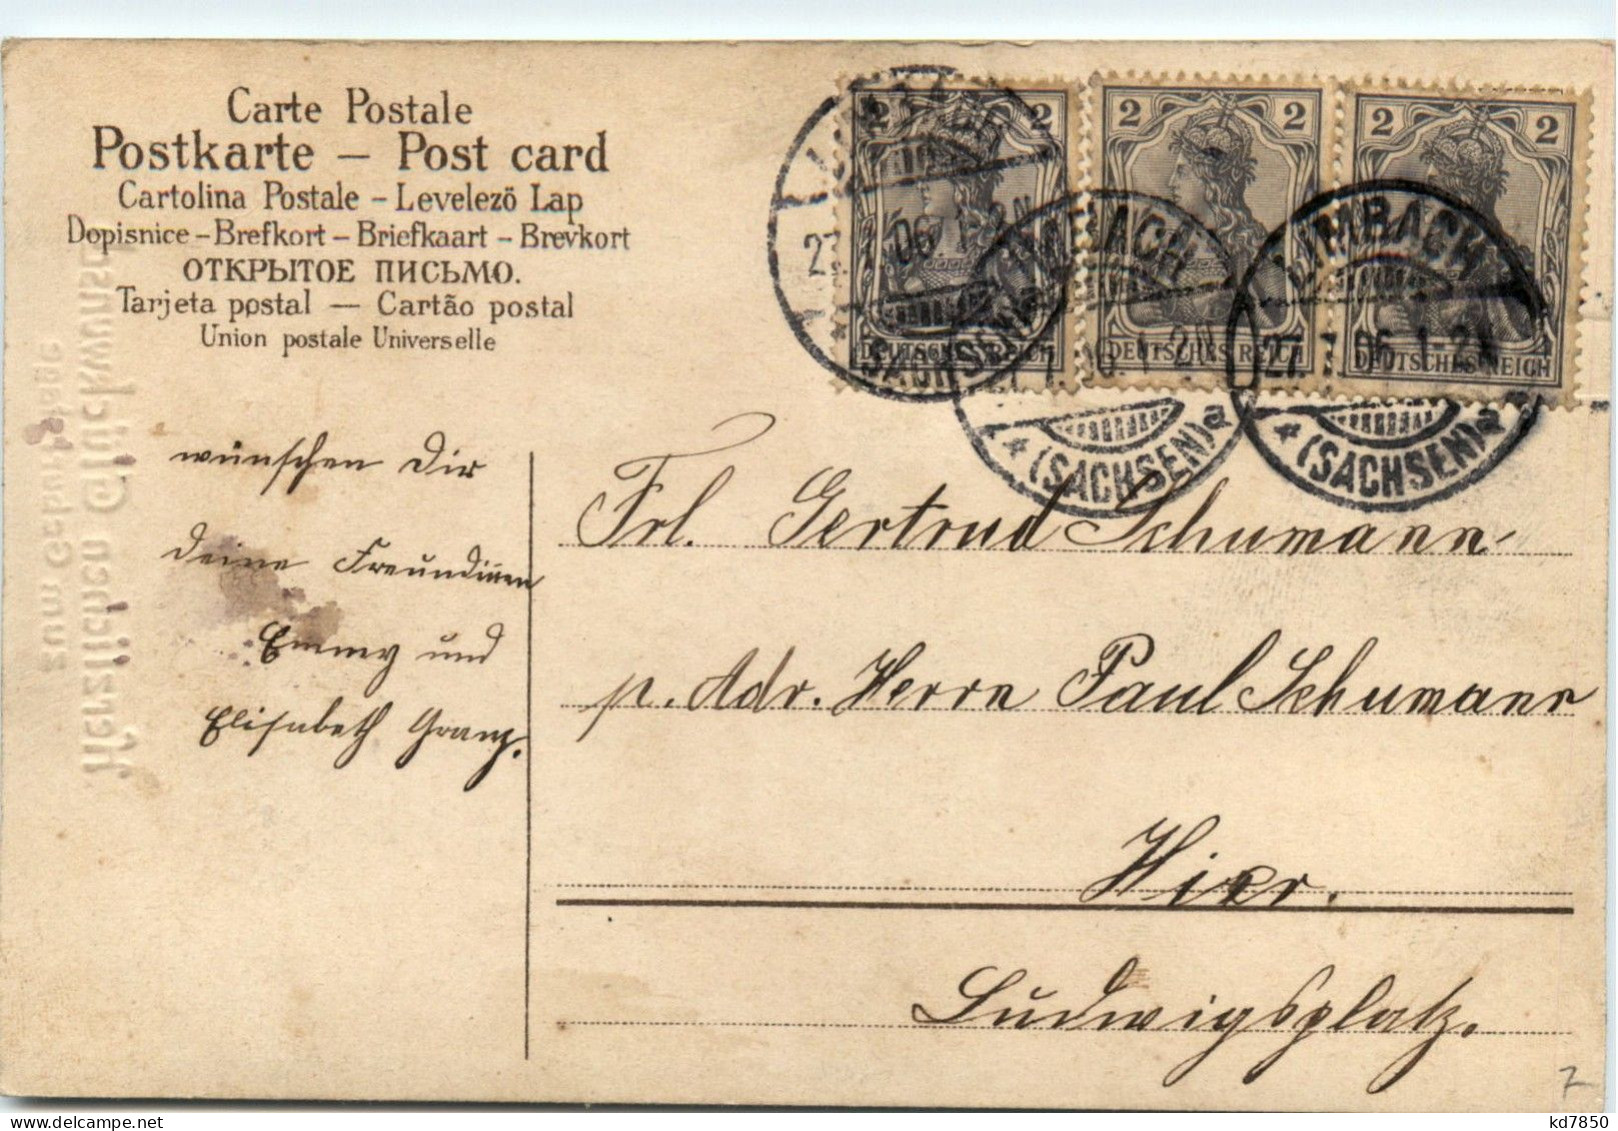 Carte Postale
Postkarte – Post card
Cartolina Postale – Levelező Lap
Dopisnice – Brefkort – Briefkaart – Brevkort
ОТКРЫТОЕ ПИСЬМО.
Tarjeta postal — Cartão postal
Union postale Universelle
2 2 2 2 2 2
DEUTSCHES REICH DEUTSCHES REICH DEUTSCHES REICH
LIMBACH
(SACHSEN)
LIMBACH
(SACHSEN) a
LIMBACH
27.1.06.1-2N
(SACHSEN) a
Herzlichen Glückwunsch
zum Geburtstage
wünschen Dir
Deine Freundinnen
Emmy und
Elisabeth Granz.
Frl. Gertrud Schumann
p. Adr. Herrn Paul Schumann
Hier.
Ludwigsplatz.
7
kd7850